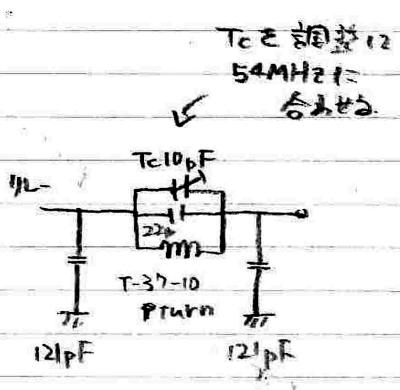 Tcを調整に
54MHzに
合わせる
Tc10pF
22p
T-37-10
turn
121pF
121pF